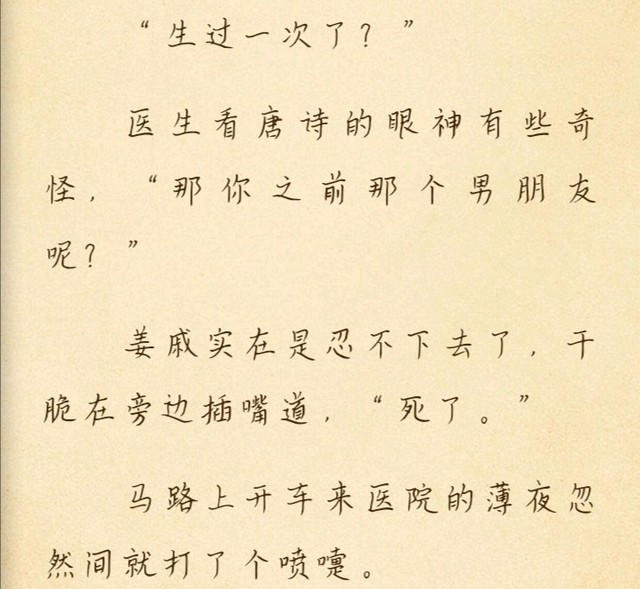 “生过一次了？”
医生看唐诗的眼神有些奇
怪，“那你之前那个男朋友
呢？”
姜戚实在是忍不下去了，干
脆在旁边插嘴道，“死了。”
马路上开车来医院的薄夜忽
然间就打了个喷嚏。